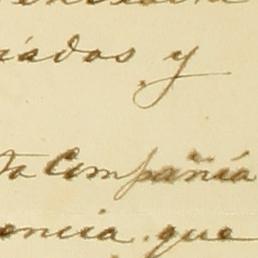 iados y
ta Compañía
encia que